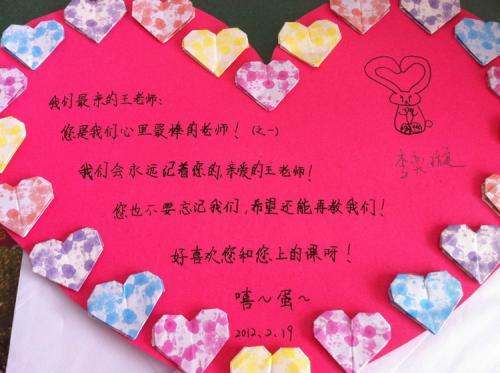 我们最亲的王老师:
您是我们心里最棒的老师!(之一)
我们会永远记着您的,亲爱的王老师!
您也不要忘记我们,希望还能再教我们!
好喜欢您和您上的课呀!
嘻~蛋~
2012.2.19